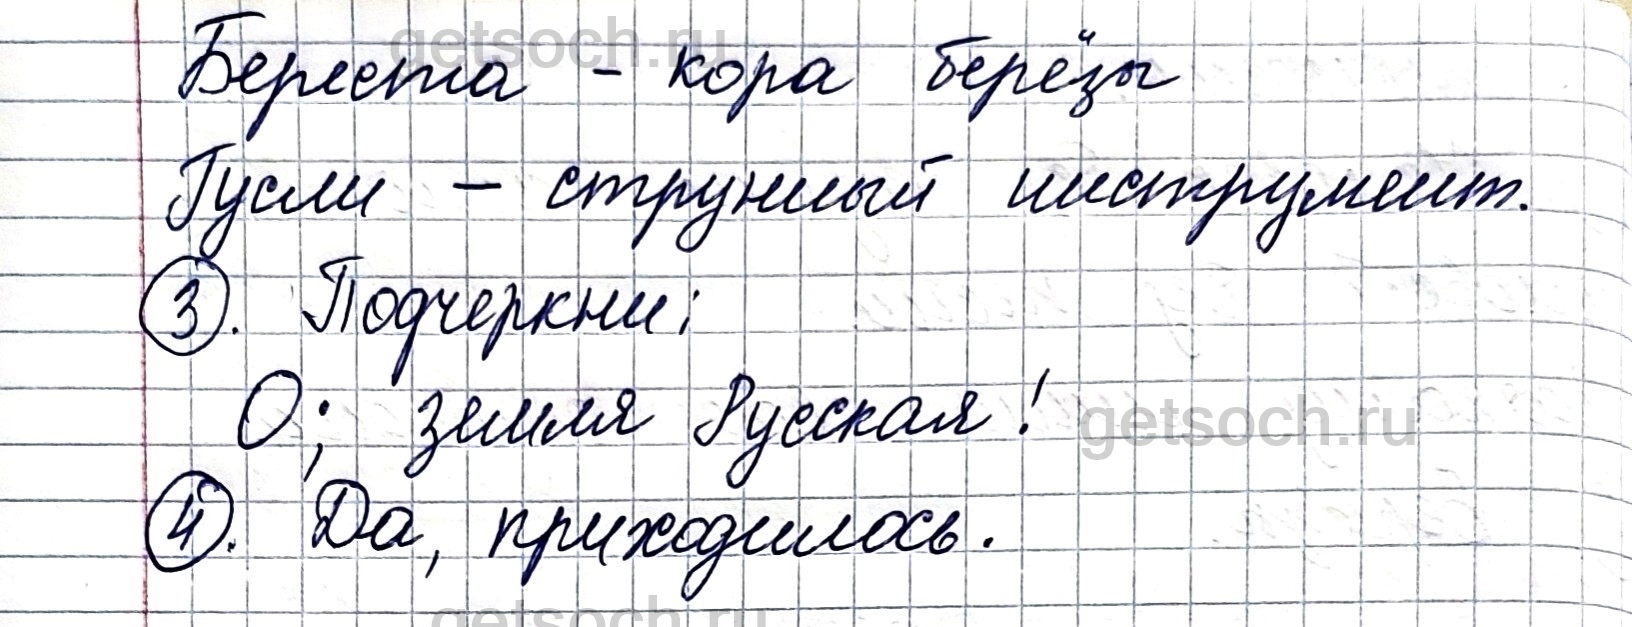 getsoch.ru
Береста - кора берёзы
Гусли - струнный инструмент.
3. Подчеркни:
О; земля Русская!
getsoch.ru
4. Да, приходилось.
getsoch.ru